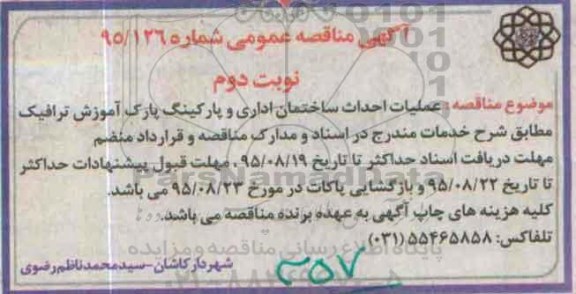 آگهی مناقصه عمومی شماره ۹۵/۱۲۶
نوبت دوم
موضوع مناقصه: عملیات احداث ساختمان اداری و پارکینگ پارک آموزش ترافیک
مطابق شرح خدمات مندرج در اسناد و مدارک مناقصه و قرارداد منضم
مهلت دریافت اسناد حداکثر تا تاریخ ۹۵/۰۸/۱۹، مهلت قبول پیشنهادات حداکثر
تا تاریخ ۹۵/۰۸/۲۲ و بازگشایی پاکات در مورخ ۹۵/۰۸/۲۳ می باشد.
کلیه هزینه های چاپ آگهی به عهده برنده مناقصه می باشد.
تلفاکس: ۵۵۴۶۵۸۵۸ (۰۳۱)
پایگاه اطلاع رسانی مناقصه و مزایده
شهردار کاشان-سیدمحمدناظم رضوی
ParsNamadData